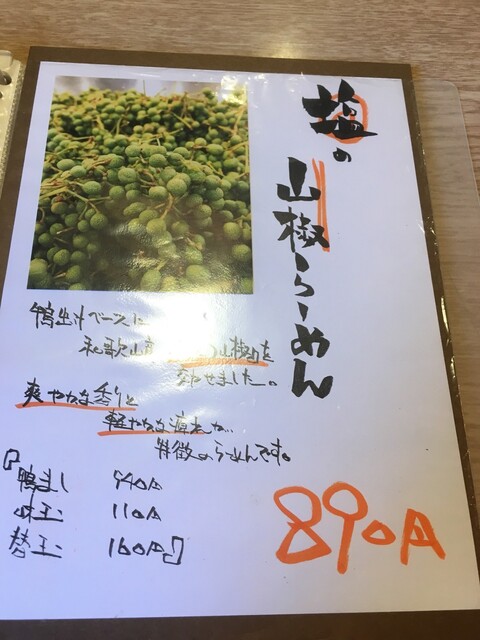 塩の
山椒らーめん
鴨出汁ベースに
和歌山産 山椒を
あわせました。
爽やかな香りと
軽やかな
特徴のらーめんです。
『鴨まし 240円
味玉 110円
替玉 160円』
890円